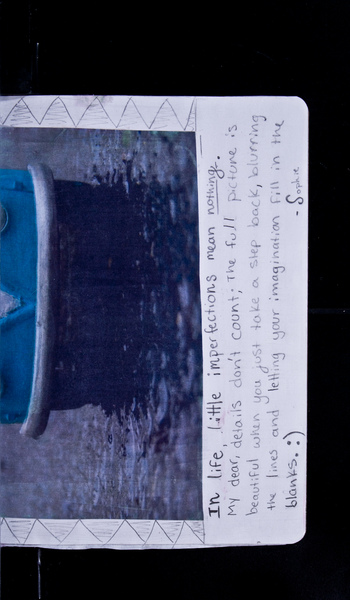 In life, little imperfections mean nothing.
My dear, details don't count; The full picture is
beautiful when you just take a step back, blurring
the lines and letting your imagination fill in the
blanks. :)
- Sophie